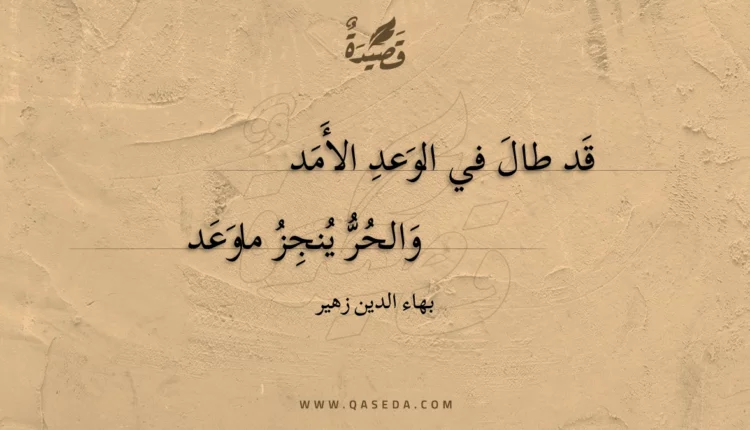 قَصِيْدَةٌ
قَد طالَ في الوَعدِ الأَمَد
وَالحُرُّ يُنجِزُ ماوَعَد
بهاء الدين زهير
WWW.QASEDA.COM